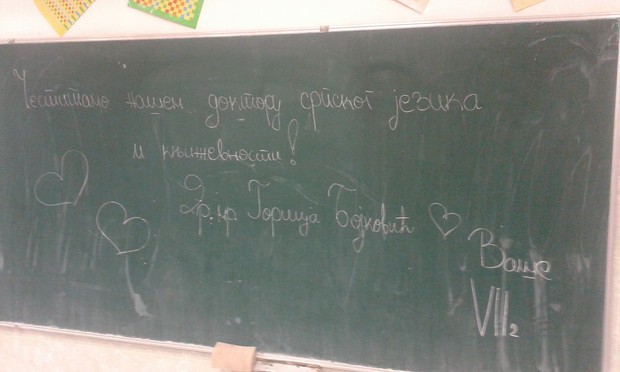 Честитамо нашем доктору српског језика
и књижевности!
Др. нр Горица Бојковић
Ваше
VII2